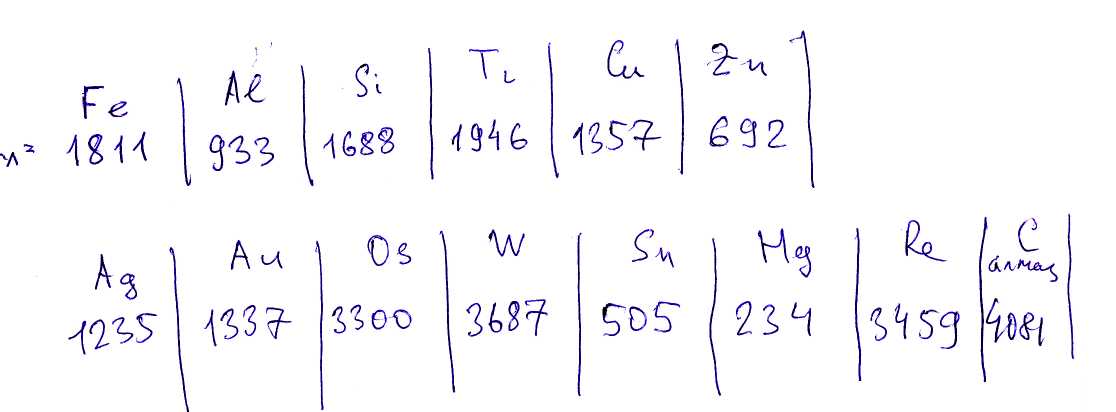 Fe | Al | Si | Ti | Cu | Zn
1811 | 933 | 1688 | 1946 | 1357 | 692
Ag | Au | Os | W | Sn | Hg | Re | C алмаз
1235 | 1337 | 3300 | 3687 | 505 | 234 | 3459 | 4081